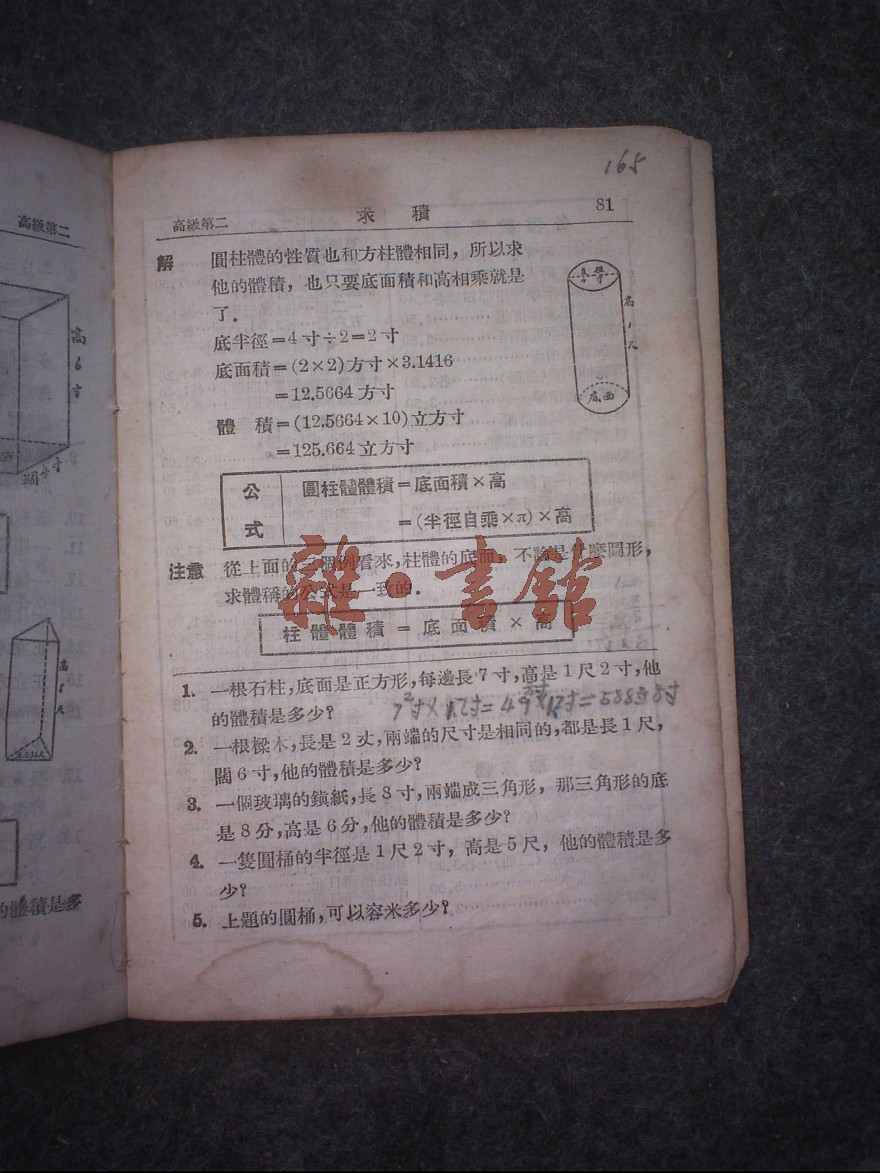 165
高級第二
求積
81
高級第二
解 圓柱體的性質也和方柱體相同，所以求
他的體積，也只要底面積和高相乘就是
了．
底半徑=4寸÷2=2寸
底面積=(2×2)方寸×3.1416
=12.5664方寸
體 積=(12.5664×10)立方寸
=125.664立方寸
高1尺
底面
公式
圓柱體體積=底面積×高
=(半徑自乘×π)×高
注意 從上面的三個例看來，柱體的底面，不論是什麼圖形，
求體積的公式是一致的．
柱體體積=底面積×高
雜·書館
1. 一根石柱，底面是正方形，每邊長7寸，高是1尺2寸，他
的體積是多少？
2. 一根樑木，長是2丈，兩端的尺寸是相同的，都是長1尺，
闊6寸，他的體積是多少？
3. 一個玻璃的鎮紙，長8寸，兩端成三角形，那三角形的底
是8分，高是6分，他的體積是多少？
4. 一隻圓桶的半徑是1尺2寸，高是5尺，他的體積是多
少？
5. 上題的圓桶，可以容米多少？
高6寸
的體積是多